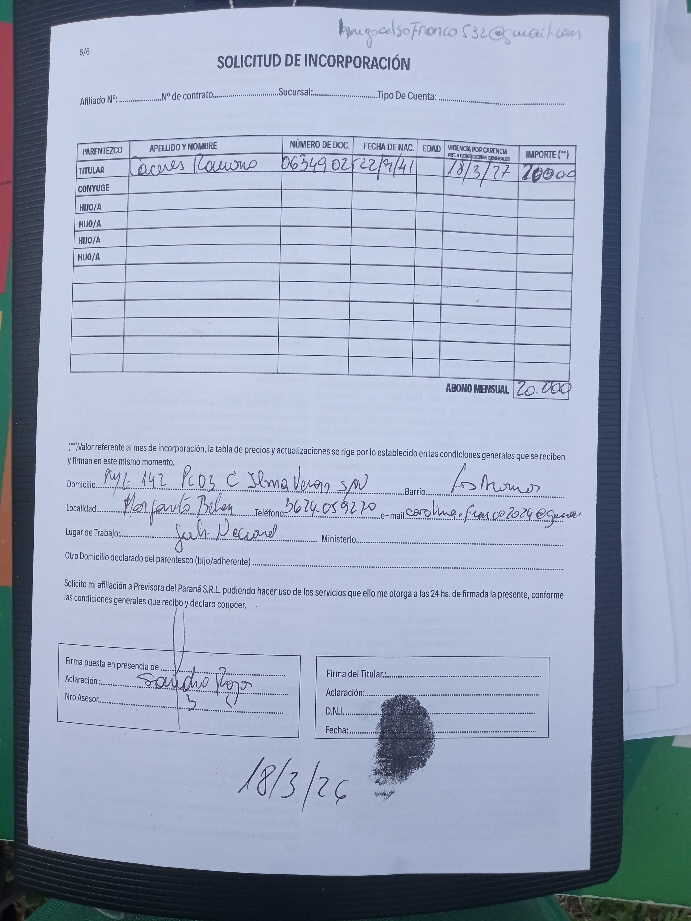 5/6
SOLICITUD DE INCORPORACIÓN
Afiliado Nº: Nº de contrato Sucursal: Tipo De Cuenta:
PARENTEZCO APELLIDO Y NOMBRE NÚMERO DE DOC. FECHA DE NAC. EDAD VIGENCIA POR CARENCIA IMPORTE (**)
TITULAR Ramona 0634902 22/9/41 18/3/27 20000
CONYUGE
HIJO/A
HIJO/A
HIJO/A
HIJO/A
ABONO MENSUAL 20.000
(**)Valor referente al mes de incorporación, la tabla de precios y actualizaciones se rige por lo establecido en las condiciones generales que se reciben
y firman en este mismo momento.
Domicilio 142 Pc03 C S/N Barrio Los
Localidad Margarita Belen Teléfono 3624059270 e-mail
Lugar de Trabajo: Jub. Nacional Ministerio
Otro Domicilio declarado del parentesco (hijo/adherente)
Solicito mi afiliación a Previsora del Paraná S.R.L. pudiendo hacer uso de los servicios que ello me otorga a las 24 hs. de firmada la presente, conforme
las condiciones generales que recibo y declaro conocer.
Firma puesta en presencia de
Aclaración: Sandro Rojas
Nro Asesor
Firma del Titular:
Aclaración:
D.N.I.
Fecha:
18/3/26